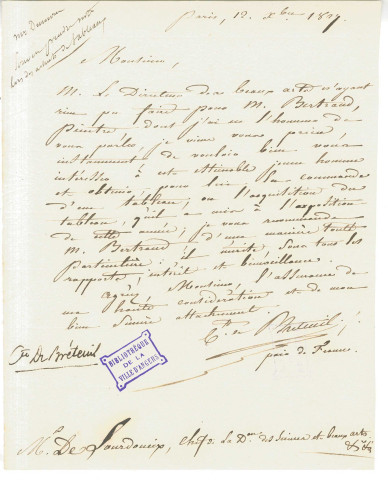 Paris, 12 Xbre 1827
Monsieur,
M. Le Directeur des beaux arts n'ayant
rien pu faire pour M. Bertrand,
peintre dont j'ai eu l'honneur de
vous parler, je viens vous prier,
instamment de vouloir bien vous
intéresser à cet estimable jeune homme
et obtenir, pour lui la commande
d'un tableau, ou l'acquisition du
tableau, qu'il a mis à l'exposition
de cette année; je vous recommande
M. Bertrand d'une manière toute
Particulière: il mérite, sous tous les
rapports, intérêt et bienveillance.
agréez Monsieur l'assurance de
ma haute considération et de mon
bien sincère attachement
Cte. de Breteuil,
pair de France.
Cte De Bréteuil
BIBLIOTHÈQUE
DE LA
VILLE D'ANGERS
Mr. De Lourdoueix, Chef de La Don. des Sciences et beaux arts